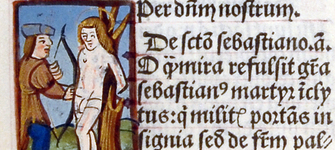 Per dn̄m nostrum.
De sctō sebastiano.ā.
O q̄͂mira refulsit gr̄a
sebastianꝰ martyr īcly
tus:q̓ militꝭ portās in
signia seō de fr̄m pal⸗